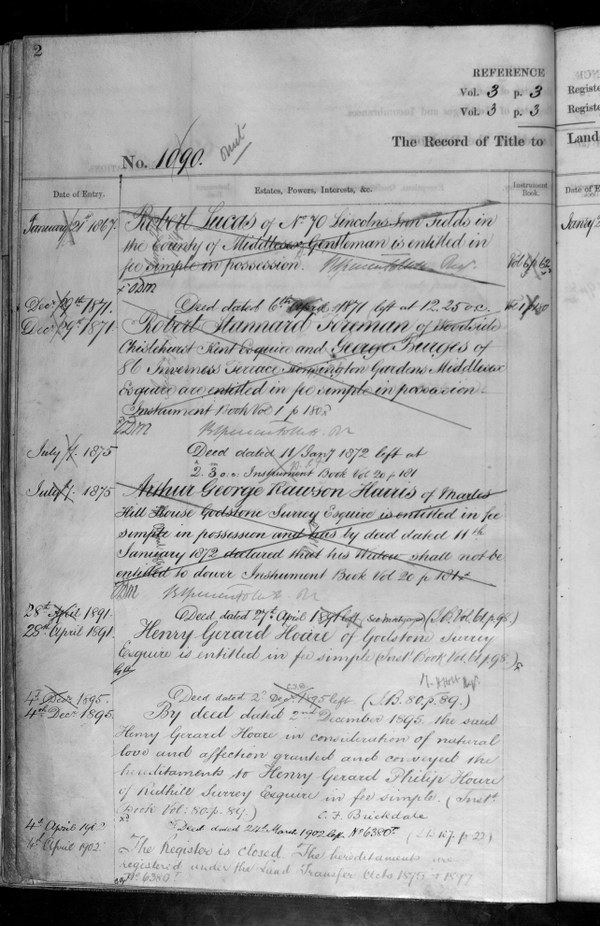 2
REFERENCE
Vol. 3 p. 3
Vol. 3 p. 3
The Record of Title to
No. 1090.
Date of Entry.
Estates, Powers, Interests, &c.
Instrument Book.
January 21st 1867.
Robert Lucas of No 70 Lincolns Inn Fields in
the County of Middlesex Gentleman is entitled in
fee simple in possession.
Decr 29th 1871.
Deed dated 6th 1871 left at 12.25 o.c.
Decr 29th 1871
Robert Stannard Foreman of Woodside
Chislehurst Kent Esquire and George Burges of
86 Inverness Terrace Kensington Gardens Middlesex
Esquire are entitled in fee simple in possession.
Instrument Book Vol 1 p 180
July 1875
Deed dated 11 Jany 1872 left at
2.30 o.c. Instrument Book Vol 20 p 181
July 1875
Arthur George Rawson Harris of Marles
Hill House Godstone Surrey Esquire is entitled in fee
simple in possession and has by deed dated 11th
January 1872 declared that his Widow shall not be
entitled to dower Instrument Book Vol 20 p 181
28th April 1891
Deed dated 27th April 1891 left (I.B. Vol. 61 p 98.)
28th April 1891.
Henry Gerard Hoare of Godstone Surrey
Esquire is entitled in fee simple (Inst. Book Vol. 61, p 98.)
4th Decr 1895.
Deed dated 2d Decr 1895 left (I.B. 80. p. 89.)
4th Decr 1895.
By deed dated 2nd December 1895 the said
Henry Gerard Hoare in consideration of natural
love and affection granted and conveyed the
hereditaments to Henry Gerard Philip Hoare
of Redhill Surrey Esquire in fee simple. (Inst.
Book Vol: 80. p. 89.)
C. F. Brickdale
4th April 1902
Deed dated 24th March 1902 No 6380 (p. 27)
4th April 1902.
The Register is closed The hereditaments are
registered under the Land Transfer Acts 1875 & 1897
No. 6380
Registe
Registe
Land
Date of E